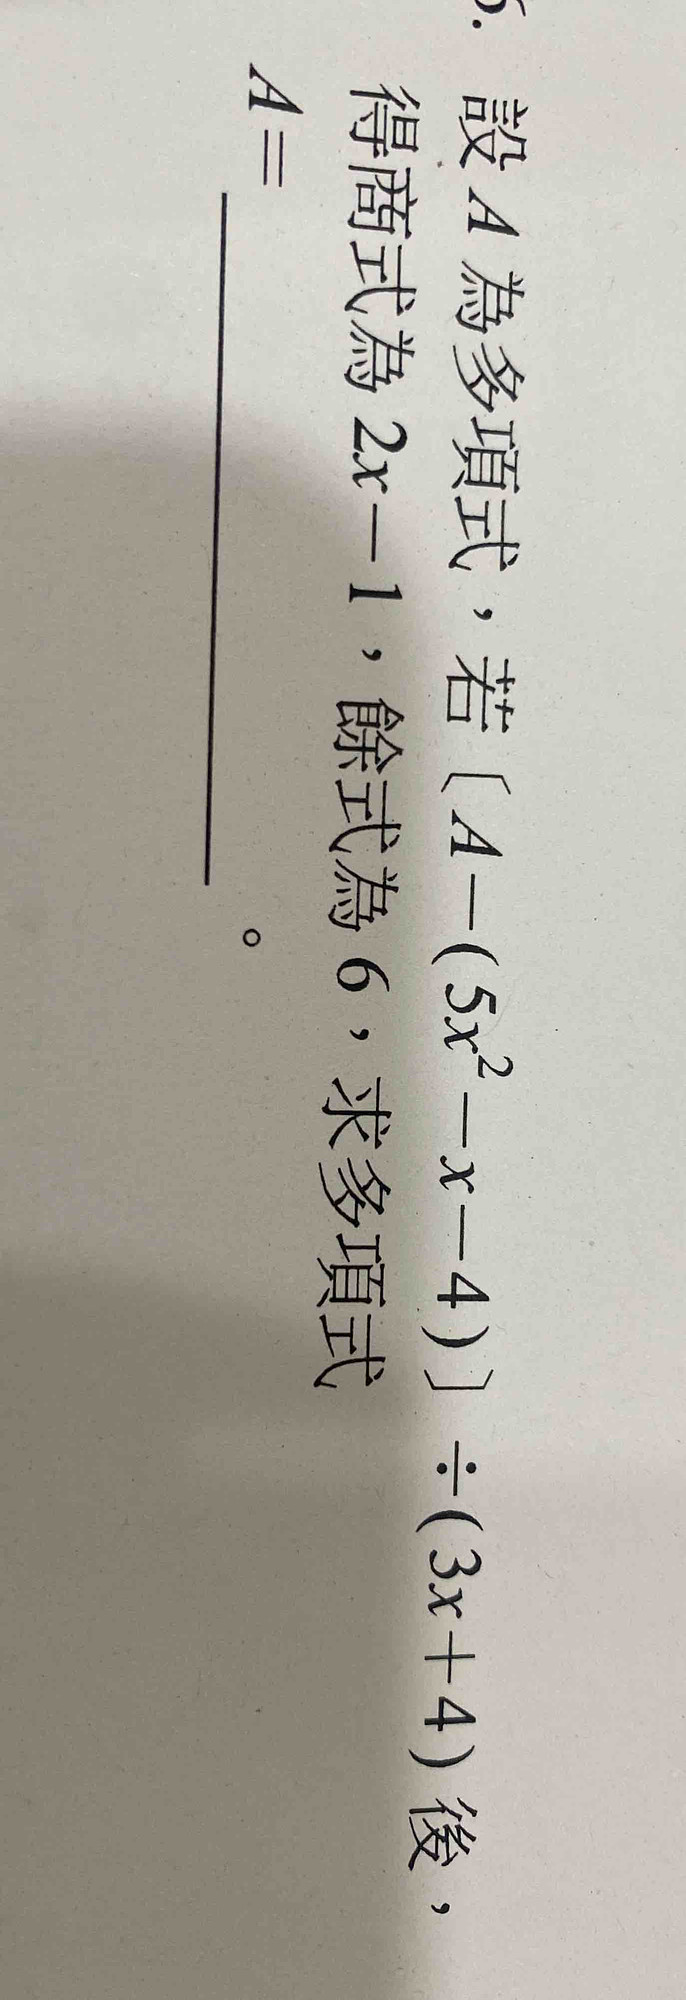 設 A 為多項式，若〔A－(5x²－x－4)〕÷(3x＋4) 後，
得商式為 2x－1，餘式為 6，求多項式
A＝＿＿＿＿＿＿＿＿。